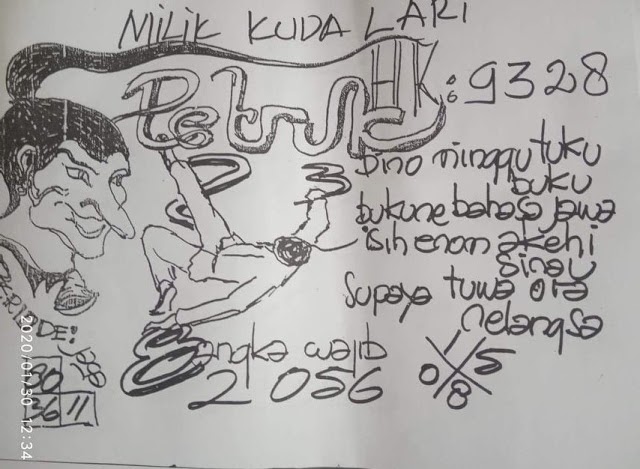 MILIK KUDA LARI
Petruk
HK: 9328
2
3
Dino minggu tuku
buku
bukune bahasa jawa
isih enom akehi
sinau
Supaya tuwa ora
nelangsa
8
angka wajib
2056
1 5
0 8
DE!
30
36 11
2020/01/30 12:34